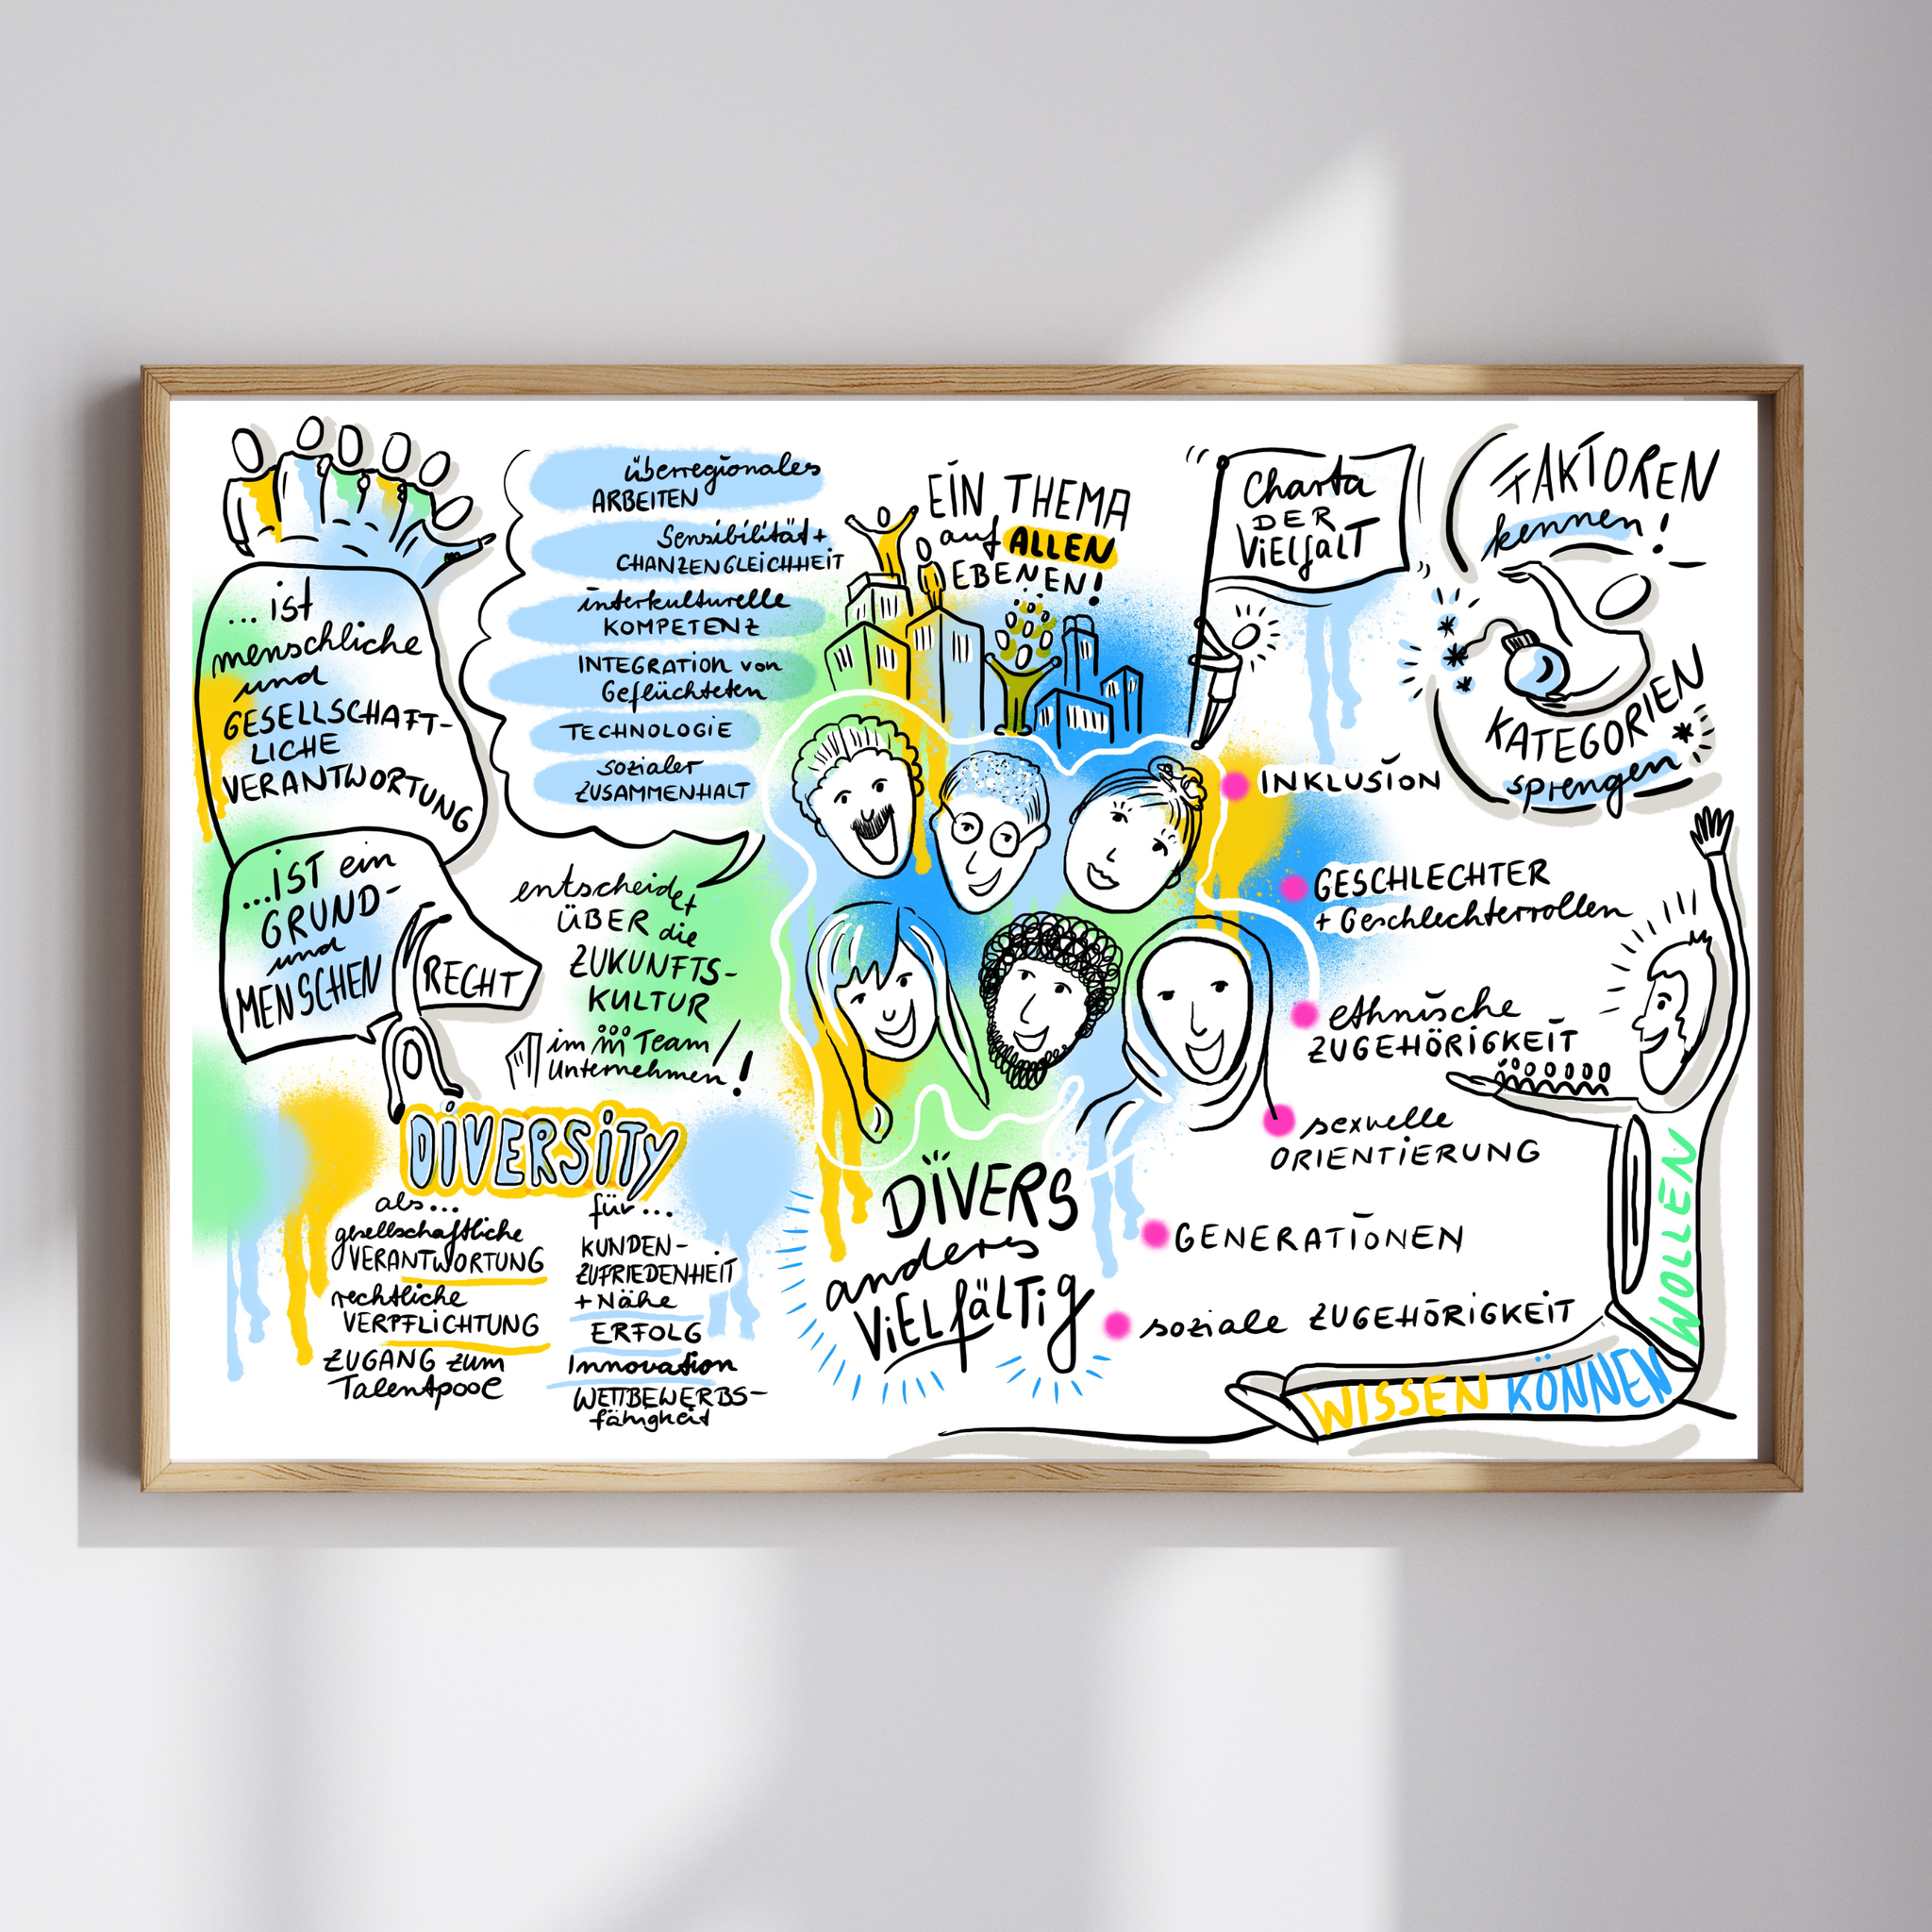 ... ist
menschliche
und
GESELLSCHAFT-
LICHE
VERANTWORTUNG
...IST ein
GRUND-
und
MENSCHEN
RECHT
überregionales
ARBEITEN
Sensibilität +
CHANZENGLEICHHEIT
interkulturelle
KOMPETENZ
INTEGRATION von
Geflüchteten
TECHNOLOGIE
sozialer
ZUSAMMENHALT
entscheidet
ÜBER die
ZUKUNFTS-
KULTUR
im Team/
Unternehmen!
DIVERSITY
als...
gesellschaftliche
VERANTWORTUNG
rechtliche
VERPFLICHTUNG
ZUGANG zum
Talentpool
für...
KUNDEN-
ZUFRIEDENHEIT
+ Nähe
ERFOLG
Innovation
WETTBEWERBS-
fähigkeit
EIN THEMA
auf ALLEN
EBENEN!
DIVERS
anders
VIELfälTig
Charta
DER
VIELfalT
FAKTOREN
kennen!
KATEGORIEN
sprengen!
INKLUSION
GESCHLECHTER
+ Geschlechterrollen
ethnische
ZUGEHÖRIGKEIT
sexuelle
ORIENTIERUNG
GENERATIONEN
soziale ZUGEHÖRIGKEIT
WISSEN KÖNNEN
WOLLEN